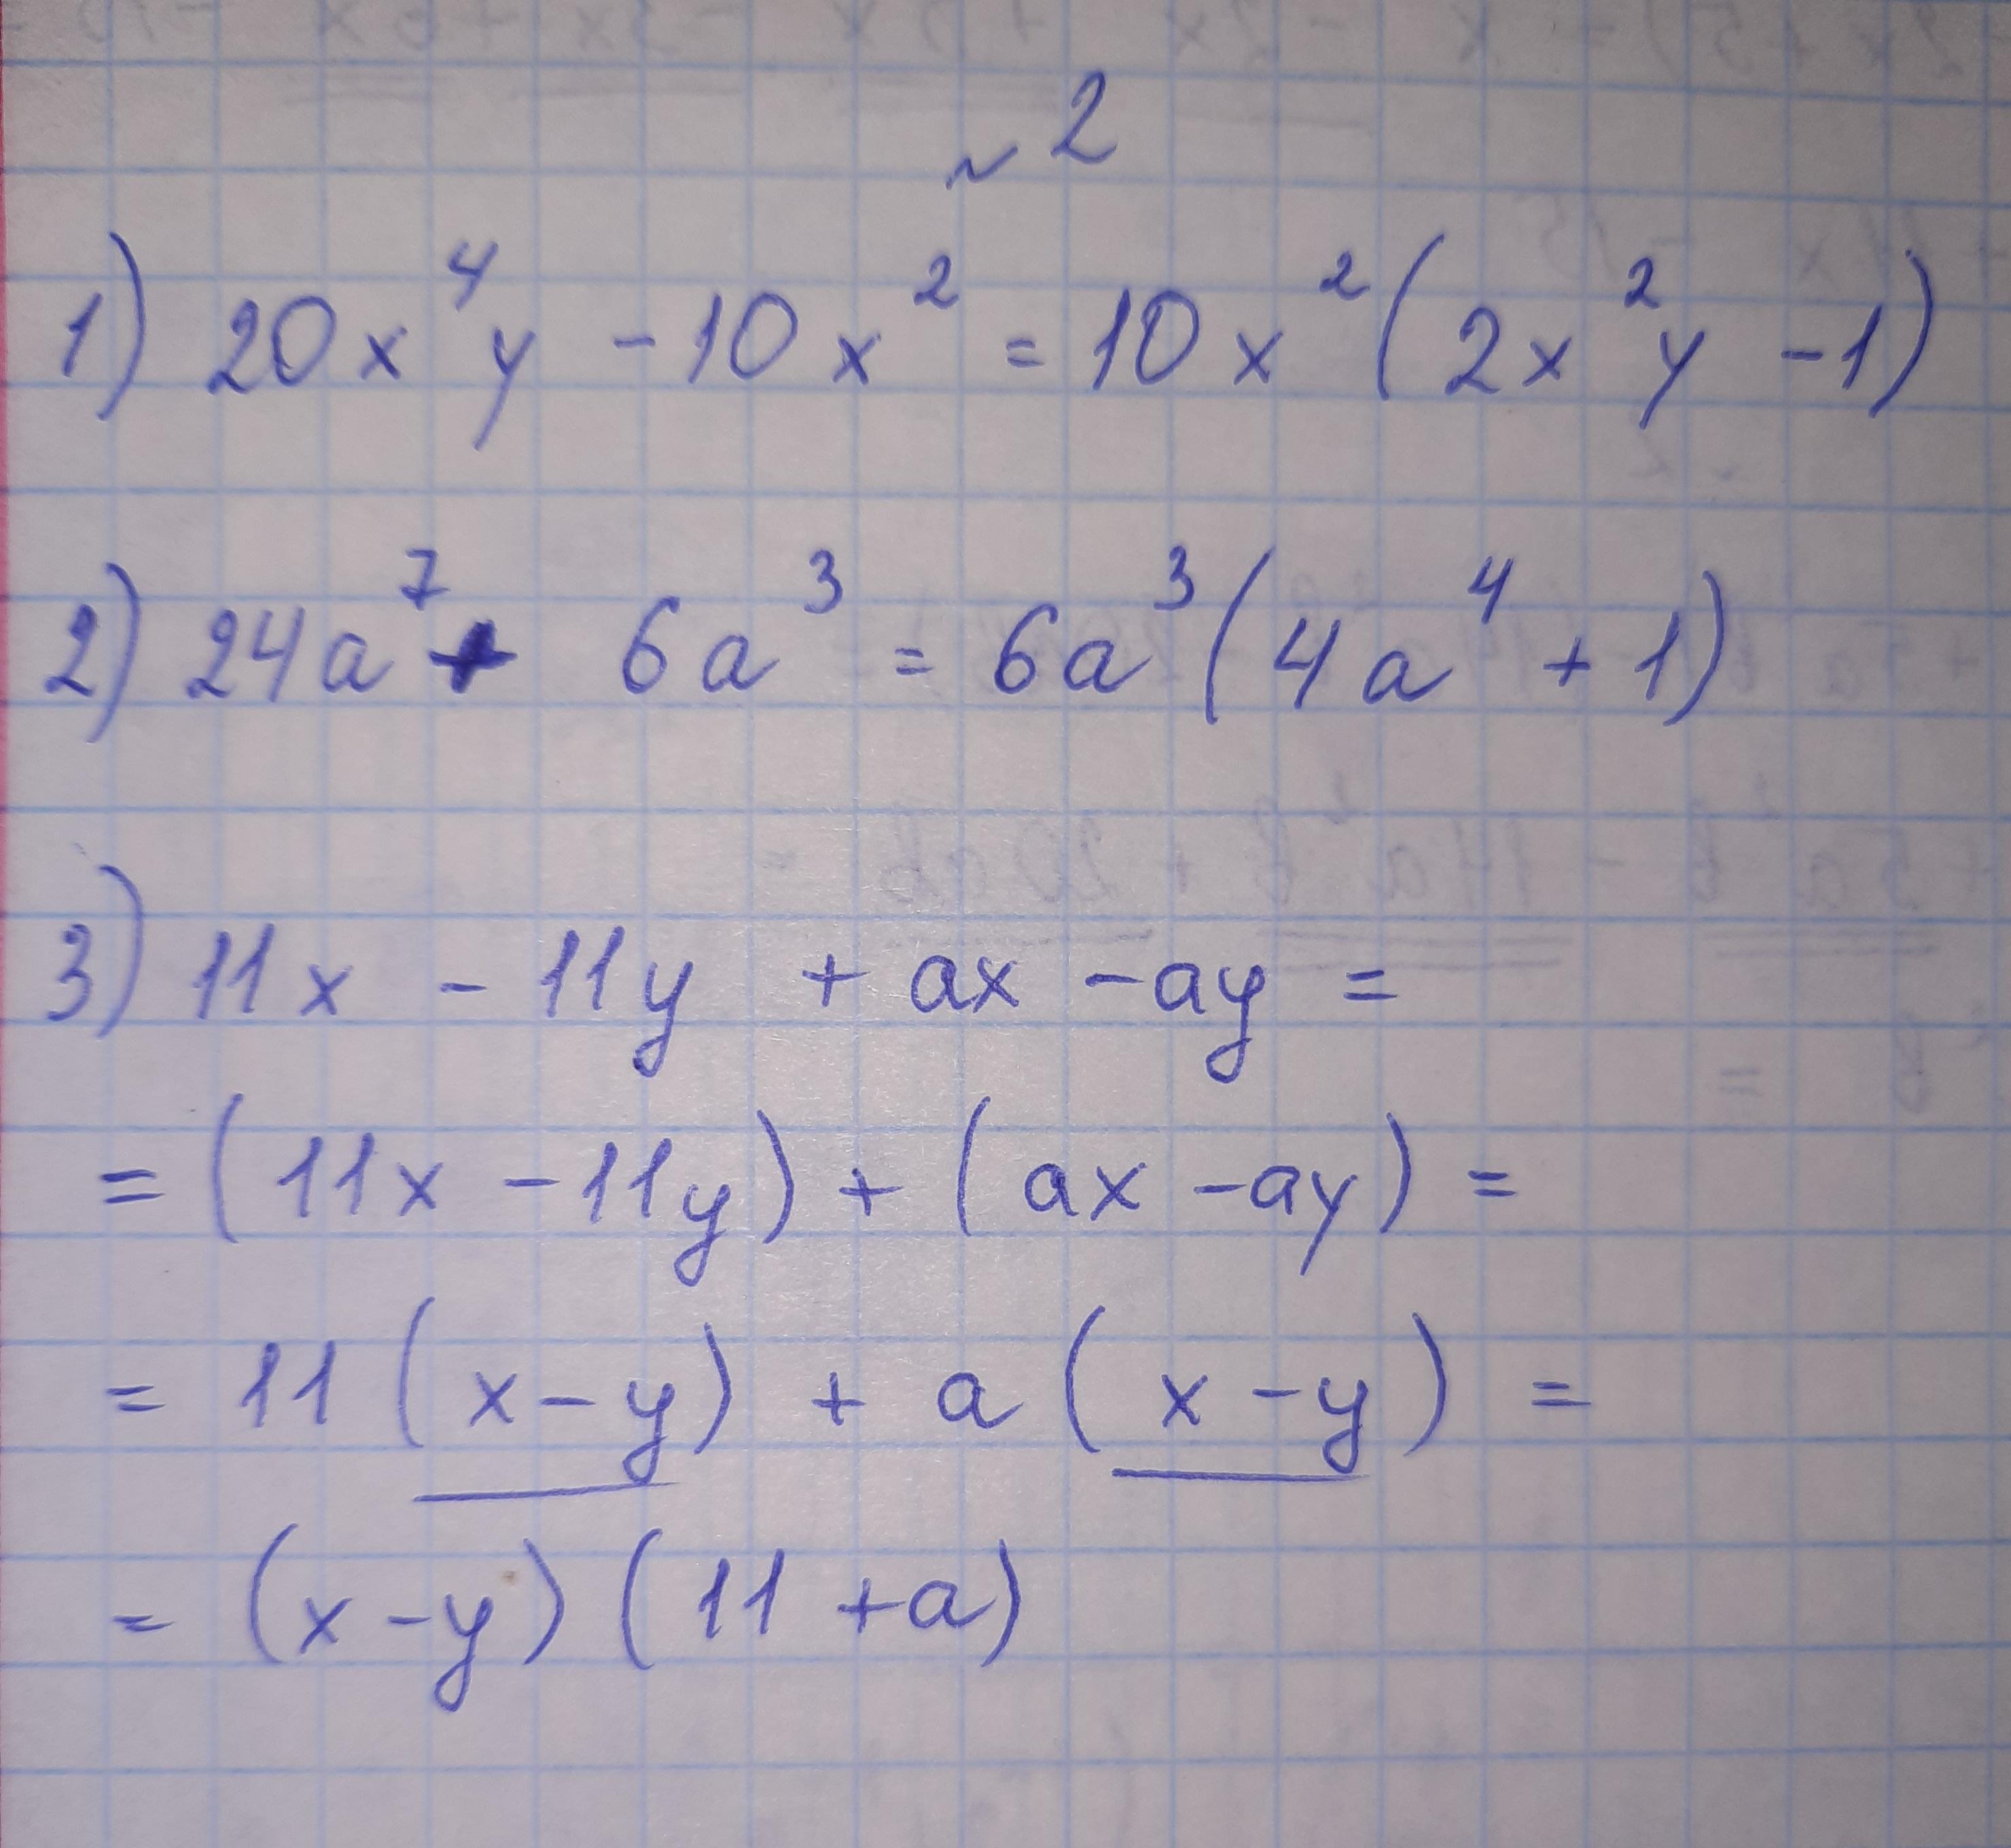 ~ 2
1) 20x⁴y - 10x² = 10x²(2x²y - 1)
2) 24a⁷ + 6a³ = 6a³(4a⁴ + 1)
3) 11x - 11y + ax - ay =
= (11x - 11y) + (ax - ay) =
= 11(x - y) + a(x - y) =
= (x - y)(11 + a)